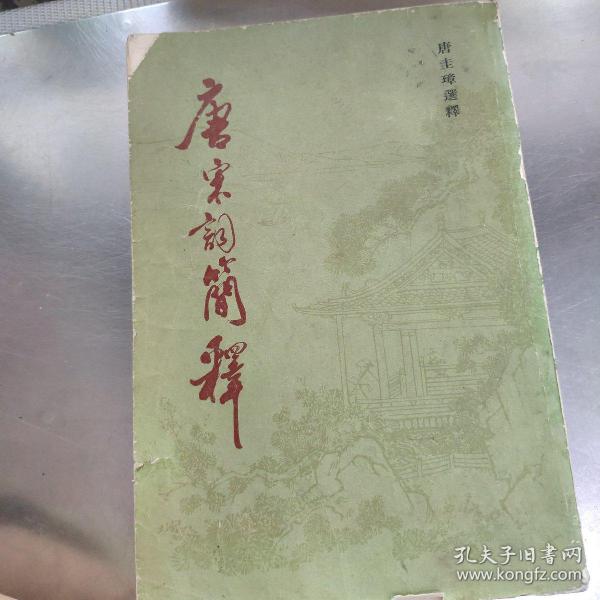 唐圭璋選釋
唐宋詞簡釋
孔夫子旧书网
www.kongfz.com